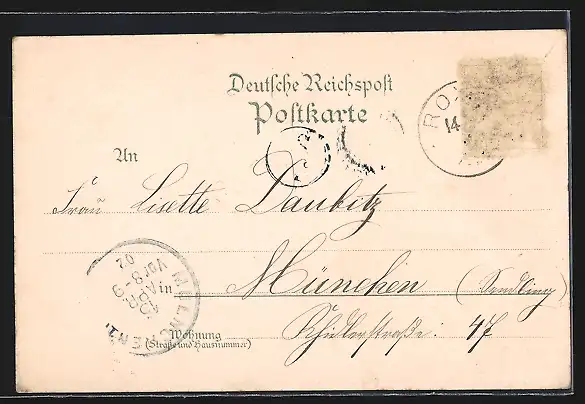 Deutsche Reichspost
Postkarte
RO
14
An
Frau Lisette Daubitz
in München (Sendling)
Wohnung
(Straße und Hausnummer)
47
MÜNCHEN
APR
VOR 8-9
02